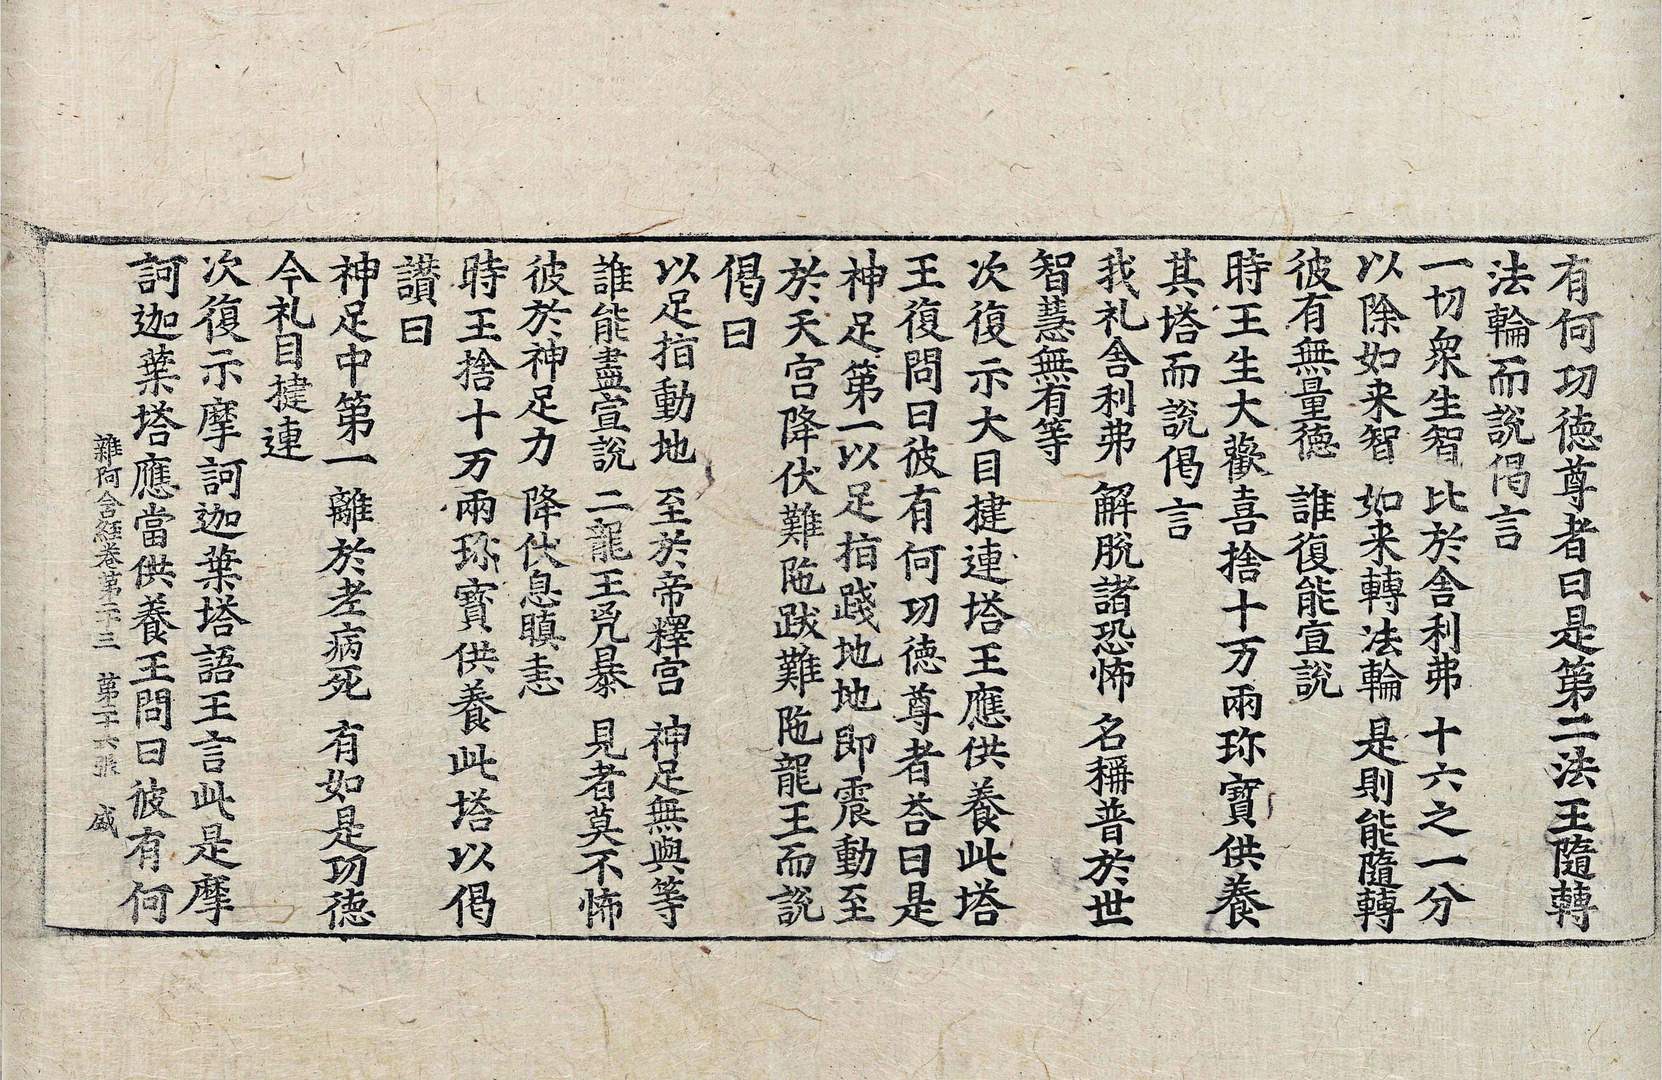 有何功徳尊者曰是第二法王隨轉
法輪而說偈言
一切衆生智 比於舍利弗 十六之一分
以除如来智 如来轉法輪 是則能隨轉
彼有無量徳 誰復能宣說
時王生大歡喜捨十万兩珎寳供養
其塔而說偈言
我礼舍利弗 解脫諸恐怖 名稱普於世
智慧無有等
次復示大目揵連塔王應供養此塔
王復問曰彼有何功徳尊者荅曰是
神足第一以足指踐地地即震動至
於天宫降伏難陁跋難陁龍王而說
偈曰
以足指動地 至於帝釋宫 神足無與等
誰能盡宣說 二龍王兇暴 見者莫不怖
彼於神足力 降伏息瞋恚
時王捨十万兩珎寳供養此塔以偈
讃曰
神足中第一 離於老病死 有如是功徳
今礼目揵連
次復示摩訶迦葉塔語王言此是摩
訶迦葉塔應當供養王問曰彼有何
雜阿含經卷第二十三 第二十六張 盛